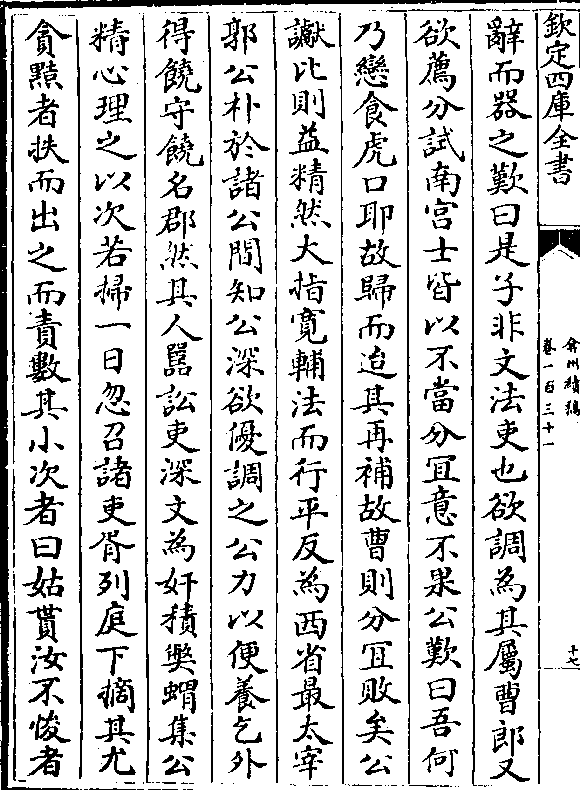 欽定四庫全書
弇州續稿
卷一百三十一
十七
辭而器之歎曰是子非文法吏也欲調為其屬曹郎又
欲薦分試南宮士皆以不當分宜意不果公歎曰吾何
乃戀食虎口耶故歸而迨其再補故曹則分宜敗矣公
讞比則益精然大指寛輔法而行平反為西省最太宰
郭公朴於諸公間知公深欲優調之公力以便養乞外
得饒守饒名郡然其人嚚訟吏深文為奸積獘蝟集公
精心理之以次若掃一日忽召諸吏胥列庭下摘其尤
貪黠者扶而出之而責數其小次者曰姑貰汝不悛者